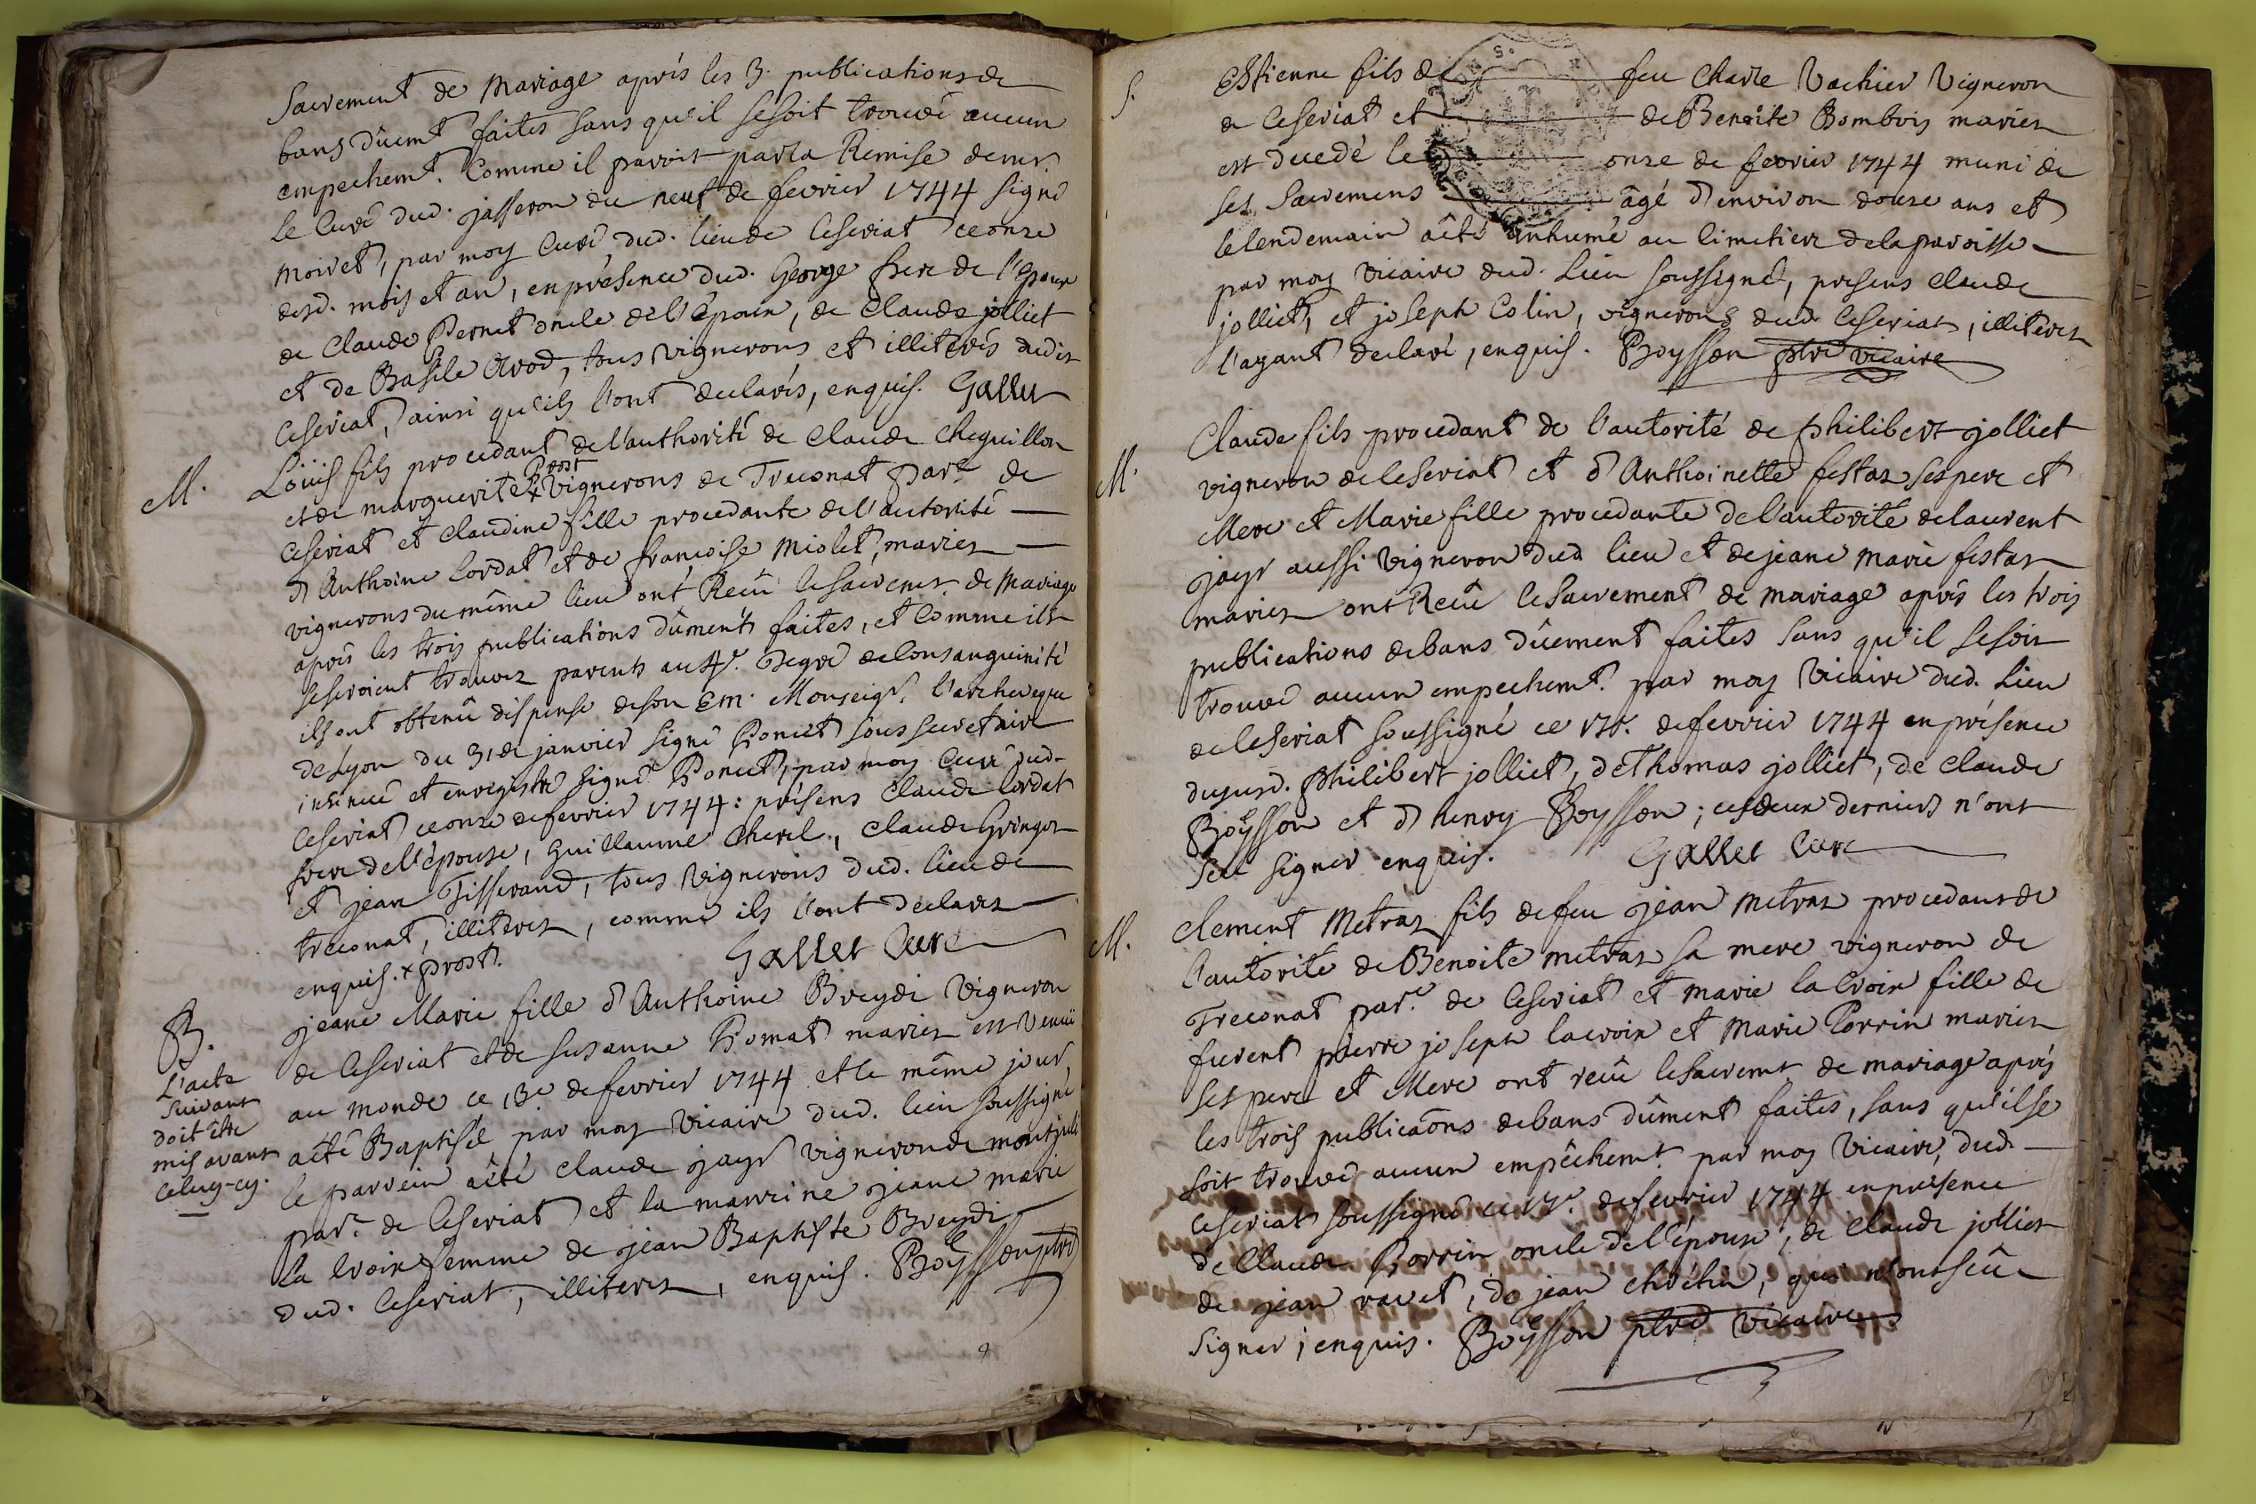 Sacrement de Mariage après les 3. publications de
bans düemt faites sans qu'il se soit trouvé aucun
empechemt. Comme il paroit par la Remise de mr
le Curé dud. jasseron du neuf de fevrier 1744 signé
moiret, par moy Curé dud. lieu de Ceseriat ce onze
desd. mois et an, en présence dud. George frere de l'Epoux
de Claude Pernet oncle de l'Epoux, de Claude jolliet
et de Basile Avod, tous vignerons et illiterés dudit
Ceseriat, ainsi qu'ils l'ont declarés, enquis. Gallet
M. Loüis fils procedant de l'authorité de Claude Cheguillon
et de marguerite + Prost vignerons de Treconat parse de
Ceseriat et Claudine fille procedante de l'autorité
d'Anthoine Cordat et de francoise Miolet, mariez
vignerons du même lieu ont Reçû le sacremt de Mariage
après les trois publications dûments faites, et Comme ils
se seroient trouvez parents au 4e. Degré de Consanguinité
ils ont obtenû dispense de son Em. Monseigr. l'archeveque
de Lyon du 31 de janvier signé Poncet sous secretaire
insinué et enregistré signé Poncet, par moy Curé dud.
Ceseriat ce onze de fevrier 1744: présens Claude Cordat
frere de l'épouse, Guillaume Cherel, Claude Gringoz
et jean Tisserand, tous vignerons dud. lieu de
treconat, illiterez, comme ils l'ont declarez
enquis. + prost. Gallet Curé
B. jeane Marie fille d'Anthoine Breydi Vigneron
de Ceseriat et de Susanne Pomat mariez est venuë
au monde ce 13e de fevrier 1744 et le même jour
a été Baptisée par moy Vicaire dud. lieu soussigné
le parrein a été Claude Jayr vigneron de montjuli
parse de Ceseriat et la marreine jeane marie
la Croix femme de jean Baptiste Breydi
dud. Ceseriat, illiterez, enquis. Boÿsson ptre
L'acte
suivant
doit être
mis avant
celuy-cy.
S. Estienne fils de feu Charle Vachier Vigneron
de Ceseriat et de Benoite Bombois mariez
est decedé le onze de fevrier 1744 muni de
ses Sacremens âgé d'environ douze ans et
le lendemain a été inhumé au Cimetiere de la paroisse
par moy vicaire dud. Lieu soussigné, presens Claude
jolliet, et joseph Colin, vignerons dud. Ceseriat, illiterez
l'ayant declaré, enquis. Boysson ptre vicaire
M. Claude fils procedant de l'autorité de philibert jolliet
vigneron de Ceseriat et d'Anthoinette festaz ses pere et
Mere et Marie fille procedante de l'autorité de laurent
jayr aussi vigneron dud lieu et de jeane Marie festaz
mariez ont Reçû le Sacrement de Mariage après les trois
publications de bans dûement faites sans qu'il se soit
trouvé aucun empechemt. par moy Vicaire dud. Lieu
de Ceseriat soussigné ce 17e. de fevrier 1744 en présence
du susd. Philibert jolliet, de Thomas jolliet, de Claude
Boÿsson et d'henry Boysson; ces deux derniers n'ont
sçu signer enquis. Gallet Curé
M. Clement Metraz fils de feu jean metraz procedant de
l'autorité de Benoite metraz sa mere vigneron de
Treconat parse. de Ceseriat et marie la Croix fille de
furent pierre joseph lacroix et Marie Perrin mariez
ses pere et Mere ont reçû le sacremt de mariage après
les trois publicaõns de bans dûment faites, sans qu'il se
soit trouvé aucun empêchemt par moy Vicaire, dud.
Ceseriat soussigné ce 17e. de fevrier 1744 en présence
de Claude Perrin oncle de l'épouse, de Claude jolliet
de jean ravet, de jean chrétin, qui n'ont sçû
signer, enquis. Boÿsson ptre Vicaire